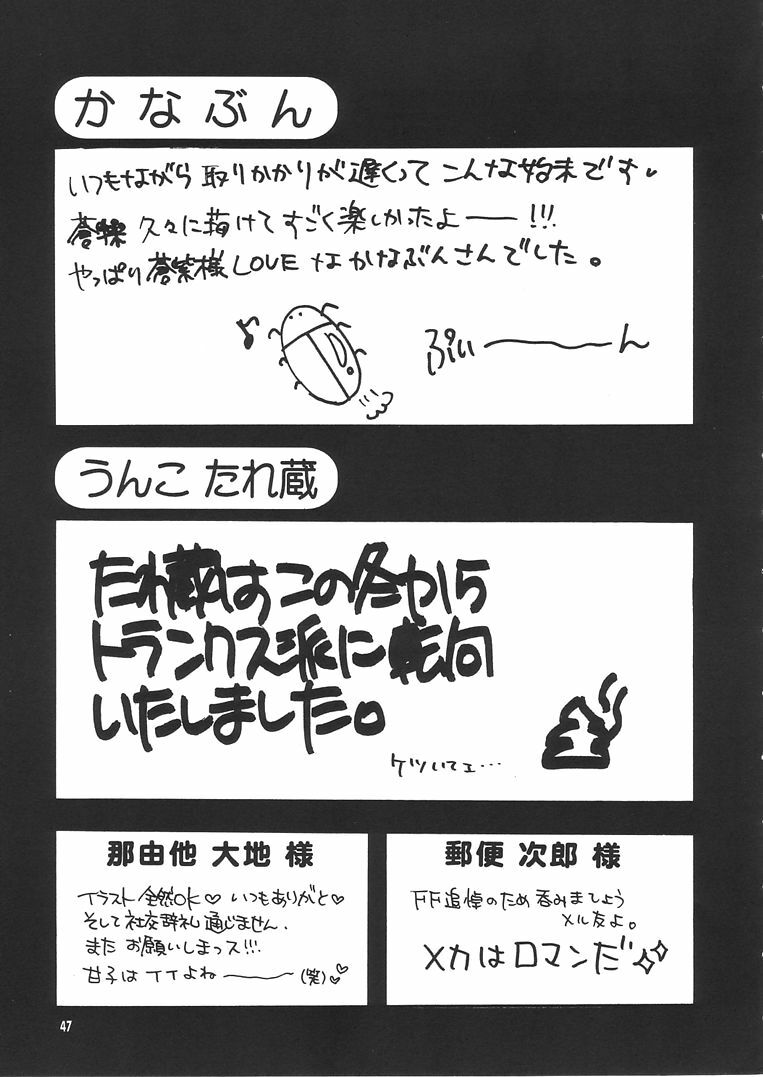 かなぶん
いつもながら 取りかかりが遅くって こんな始末です。
久々に描けてすごく楽しかったよーー!!!
やっぱり蒼紫様LOVEなかなぶんさんでした。
♪
ぷぃーーん
うんこ たれ蔵
たれ蔵はこの冬から
トランクス派に転向
いたしました。
ケツいてェ…
那由他 大地 様
イラスト全然OK♡ いつもありがと♡
そして社交辞礼通じません.
また お願いしまっス!!!
甘子は イイよねーー(笑)♡
郵便 次郎 様
FF追悼のため呑みましょう
メル友よ。
メカはロマンだ
47